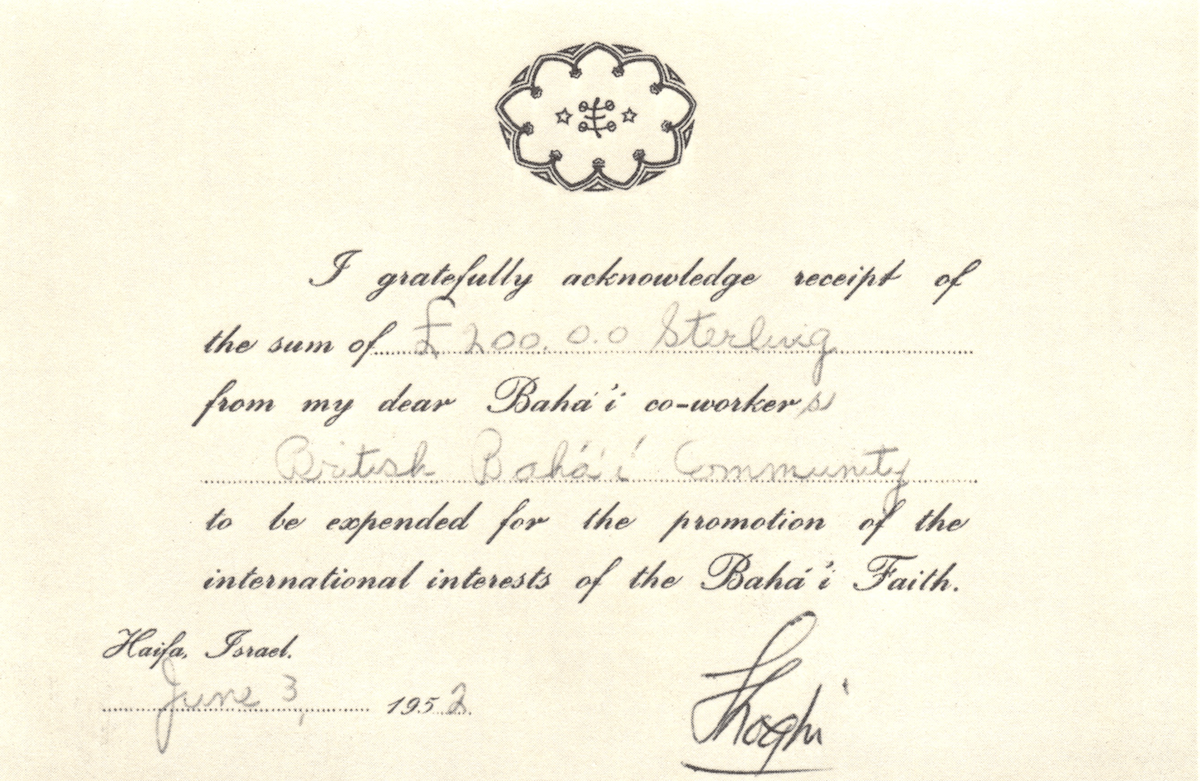 I gratefully acknowledge receipt of
the sum of £200.0.0 Sterling
from my dear Bahá'í co-workers
British Bahá'í Community
to be expended for the promotion of the
international interests of the Bahá'í Faith.
Haifa, Israel.
June 3, 1952
Shoghi